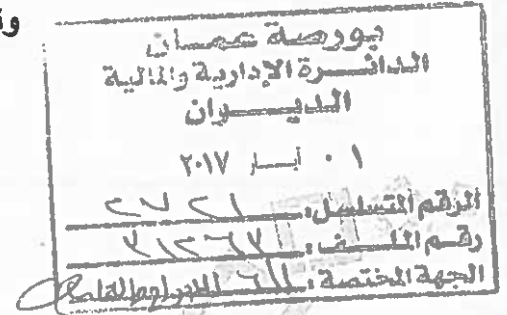 بورصة عمان
الدائرة الإدارية والمالية
الديوان
٠١ أيار ٢٠١٧
الرقم المتسلسل: ٢٧٢١
رقم الملف: ٣١٢٦٧
الجهة المختصة: